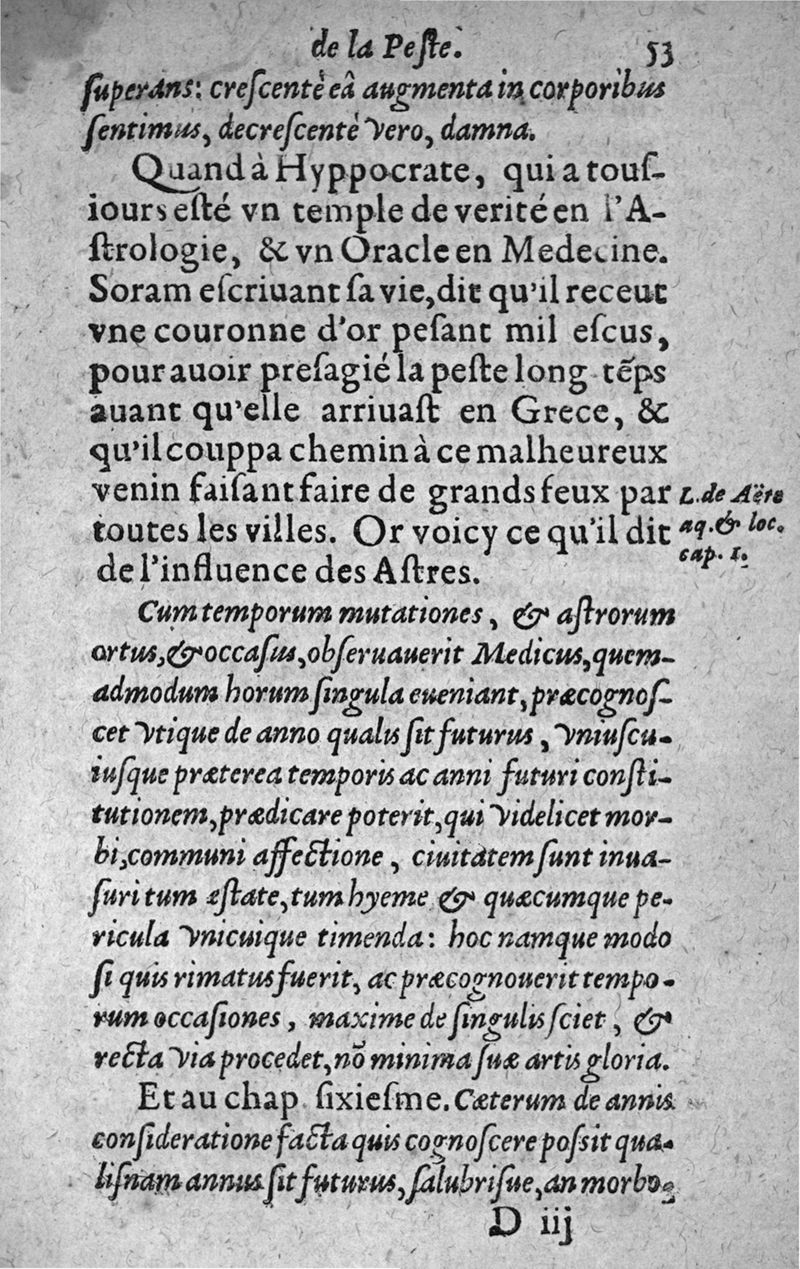 de la Peſte. 53
ſuperans: creſcente eâ augmenta in corporibus
ſentimus, decreſcente vero, damna.
Quand à Hyppocrate, qui a touſ-
iours eſté vn temple de verité en l'A-
ſtrologie, & vn Oracle en Medecine.
Soram eſcriuant ſa vie, dit qu'il receut
vne couronne d'or peſant mil eſcus,
pour auoir preſagié la peſte long tẽps
auant qu'elle arriuaſt en Grece, &
qu'il couppa chemin à ce malheureux
venin faiſant faire de grands feux par
toutes les villes. Or voicy ce qu'il dit
de l'influence des Aſtres.
L. de Aëre
aq. & loc.
cap. 1.
Cum temporum mutationes, & aſtrorum
ortus, & occaſus, obſeruauerit Medicus, quem-
admodum horum ſingula eueniant, præcognoſ-
cet vtique de anno qualis ſit futurus, vniuſcu-
iuſque præterea temporis ac anni futuri conſti-
tutionem, prædicare poterit, qui videlicet mor-
bi, communi affectione, ciuitatem ſunt inua-
ſuri tum æſtate, tum hyeme & quæcumque pe-
ricula vnicuique timenda: hoc namque modo
ſi quis rimatus fuerit, ac præcognouerit tempo-
rum occaſiones, maxime de ſingulis ſciet, &
recta via procedet, nõ minima ſuæ artis gloria.
Et au chap. ſixieſme. Cæterum de annis
conſideratione facta quis cognoſcere poſsit qua-
liſnam annus ſit futurus, ſalubriſue, an morbo-
D iij